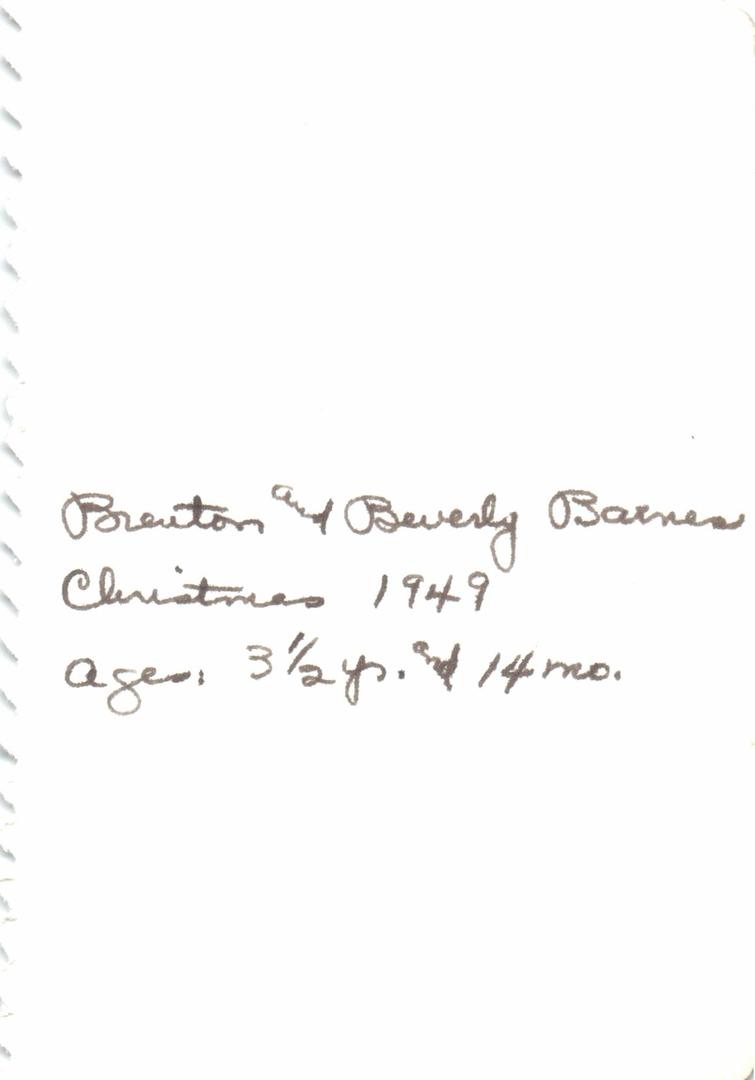 Brenton and Beverly Barnes
Christmas 1949
Ages: 3 1/2 yr. and 14 mo.